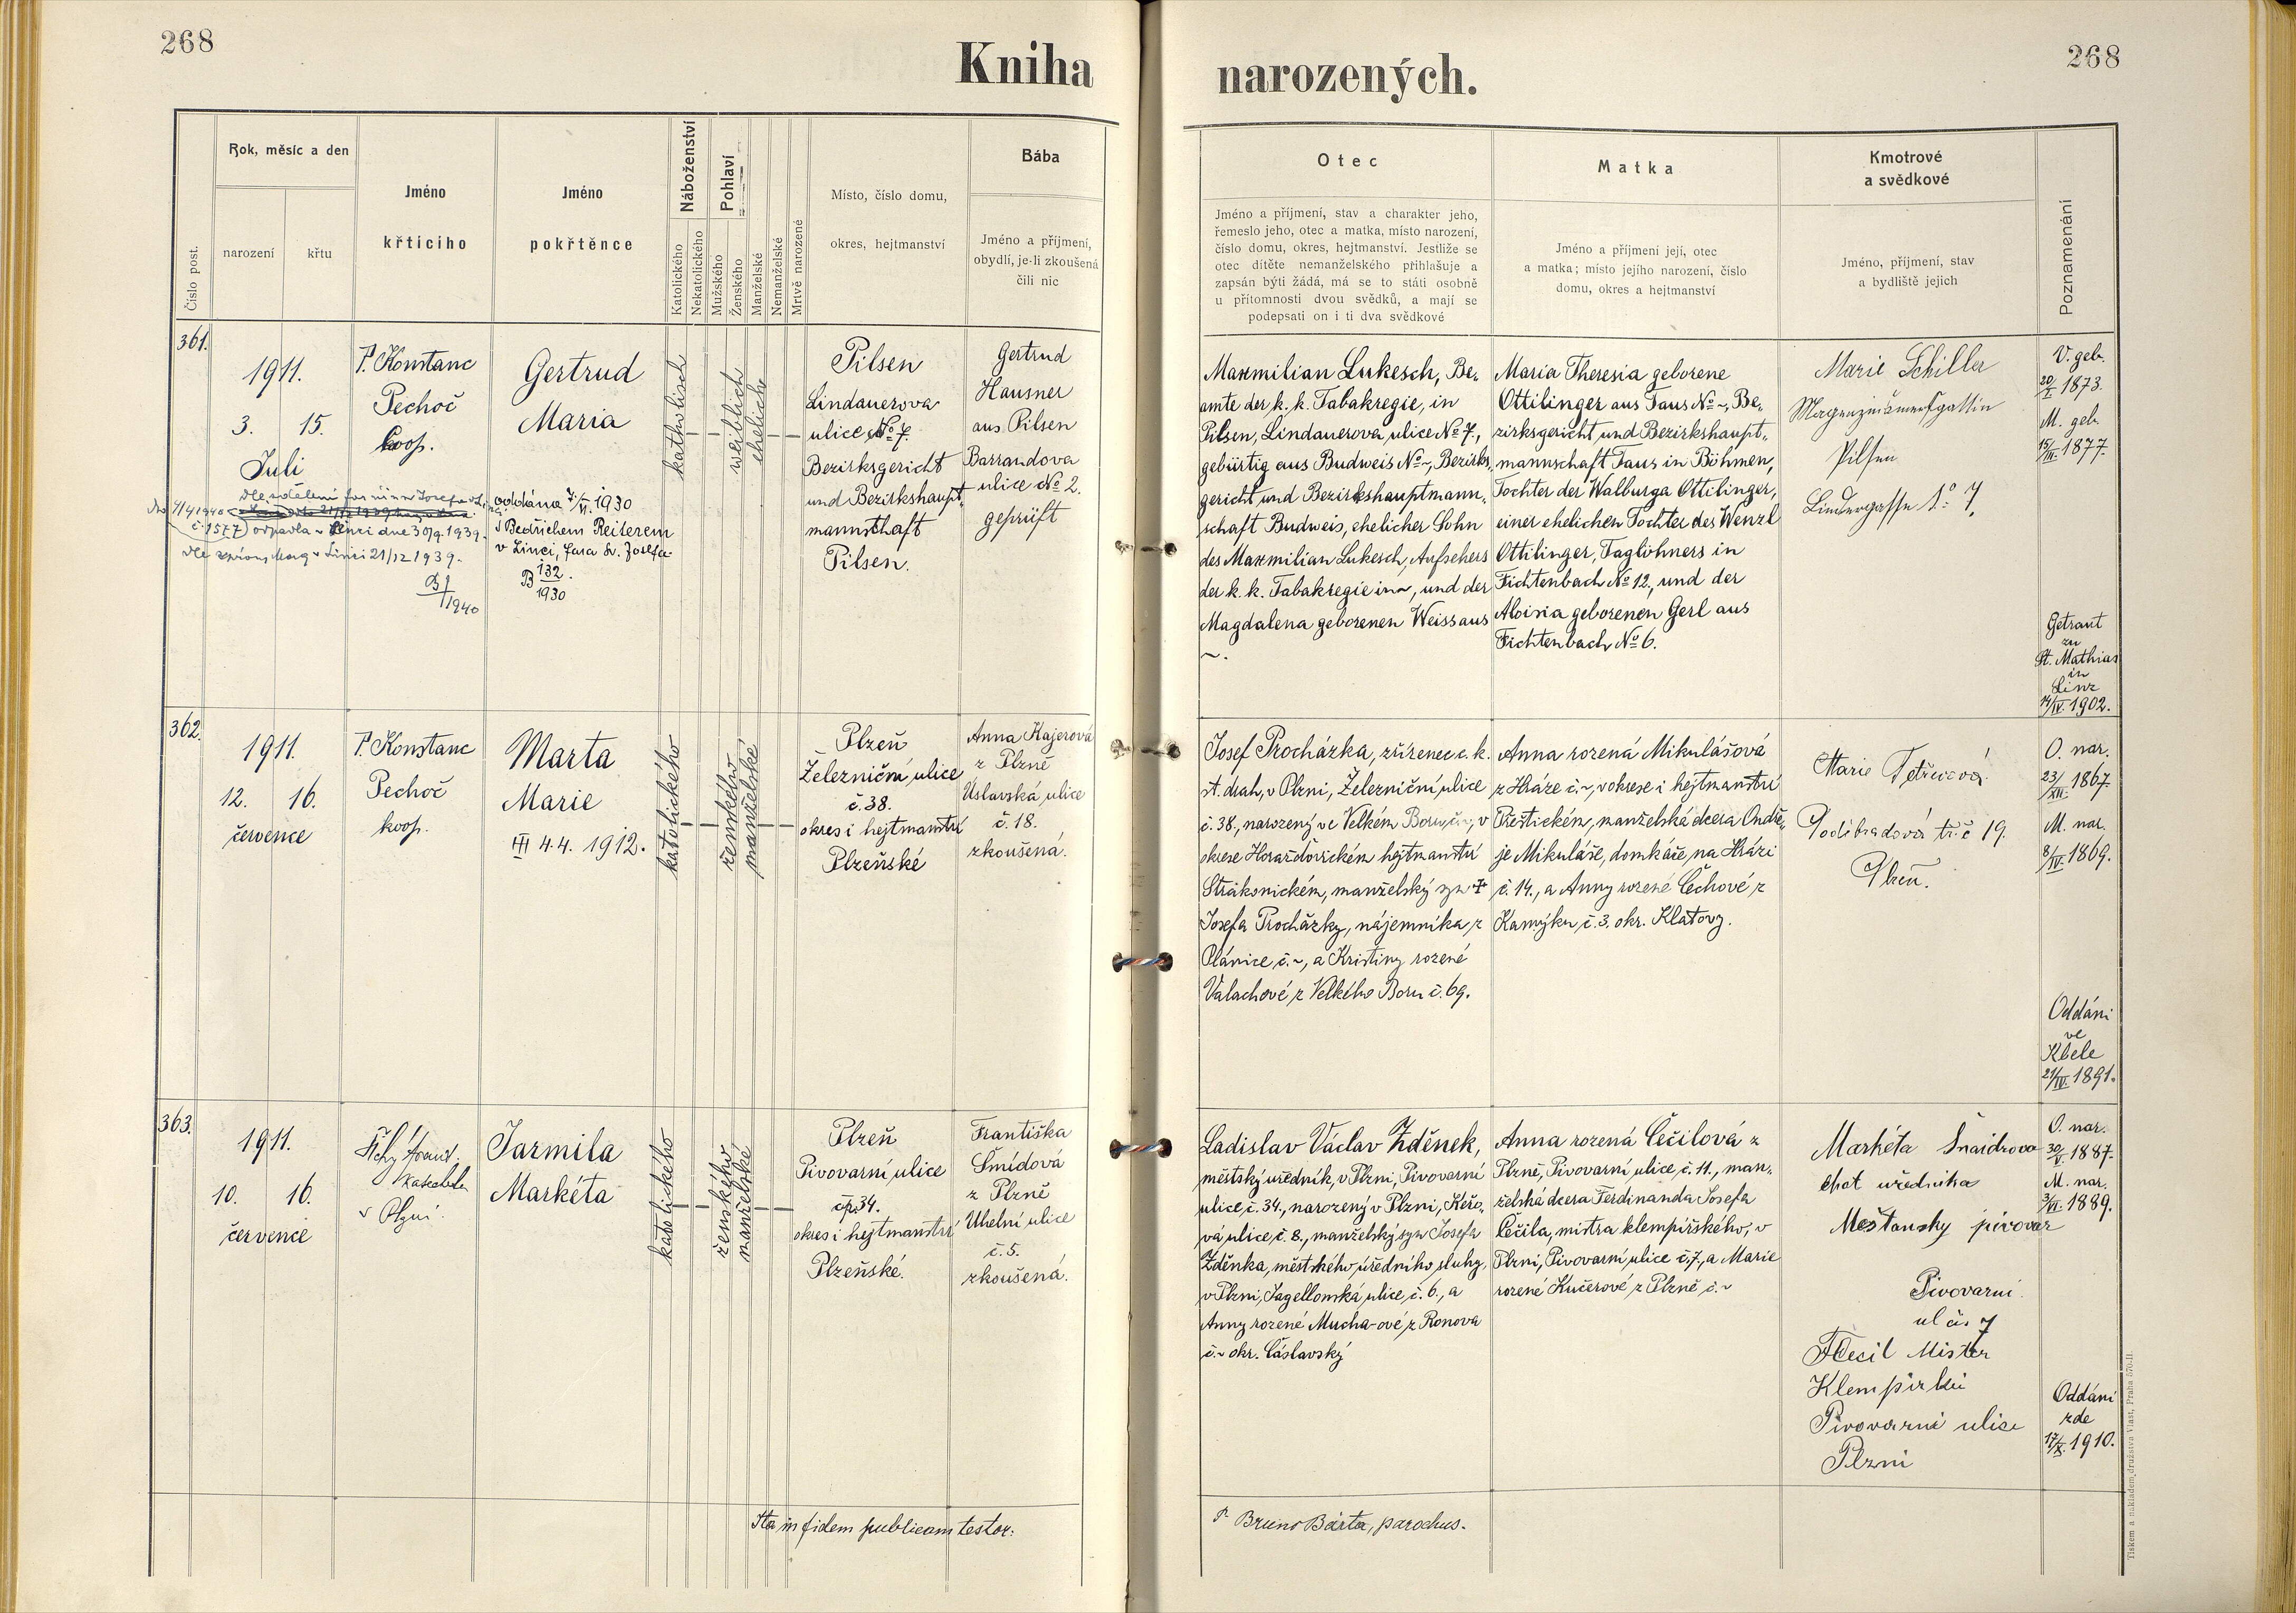 268
Kniha
narozených.
268
Číslo post.
Rok, měsíc a den
narození
křtu
Jméno
křtícího
Jméno
pokřtěnce
Náboženství
Katolického
Nekatolického
Pohlaví
Mužského
Ženského
Manželské
Nemanželské
Mrtvě narozené
Místo, číslo domu,
okres, hejtmanství
Bába
Jméno a příjmení,
obydlí, je-li zkoušená
čili nic
Otec
Jméno a příjmení, stav a charakter jeho,
řemeslo jeho, otec a matka, místo narození,
číslo domu, okres, hejtmanství. Jestliže se
otec dítěte nemanželského přihlašuje a
zapsán býti žádá, má se to státi osobně
u přítomnosti dvou svědků, a mají se
podepsati on i ti dva svědkové
Matka
Jméno a příjmení její, otec
a matka; místo jejího narození, číslo
domu, okres a hejtmanství
Kmotrové
a svědkové
Jméno, příjmení, stav
a bydliště jejich
Poznamenání
361.
1911.
3. 15.
Juli
P. Konstanc
Pechoč
koop.
Gertrud
Maria
katholisch
weiblich
ehelich
Pilsen
Lindauerova
ulice No 7.
Bezirksgericht
und Bezirkshaupt-
mannschaft
Pilsen.
Gertrud
Hausner
aus Pilsen
Barrandova
ulice No 2.
geprüft
č. 1577) odpadla v Linci dne 30/9. 1939.
Linci 21/12 1939.
1940
oddána 7/VI. 1930
s Bedřichem Reiterem
v Linci, fara Sv. Josefa
B 132.
1930
Maxmilian Lukesch, Be-
amte der k. k. Tabakregie, in
Pilsen, Lindauerova ulice No 7.,
gebürtig aus Budweis No ~, Bezirks-
gericht und Bezirkshauptmann-
schaft Budweis, ehelicher Sohn
des Maxmilian Lukesch, Aufsehers
der k. k. Tabakregie in ~, und der
Magdalena geborenen Weiss aus
~.
Maria Theresia geborene
Ottilinger aus Taus No ~, Be-
zirksgericht und Bezirkshaupt-
mannschaft Taus in Böhmen,
Tochter der Walburga Ottilinger,
einer ehelichen Tochter des Wenzl
Ottilinger, Taglöhners in
Fichtenbach No 12., und der
Aloisia geborenen Gerl aus
Fichtenbach No 6.
Marie Schiller
Pilsen
Lindergasse No 7.
V. geb.
20/X. 1873.
M. geb.
15/III. 1877.
Getraut
zu
St. Mathias
in
Linz
14/IV. 1902.
362.
1911.
12. 16.
července
P. Konstanc
Pechoč
koop.
Marta
Marie
4. 4. 1912.
katolického
ženského
manželské
Plzeň
Železniční ulice
č. 38.
okres i hejtmanství
Plzeňské
Anna Kajerová
z Plzně
Úslavská ulice
č. 18.
zkoušená.
Josef Procházka, zřízenec c. k.
st. drah, v Plzni, Železniční ulice
č. 38., narozený ve Velkém Boru, č. ~, v
okrese Horažďovickém hejtmanství
Strakonickém, manželský syn †
Josefa Procházky, nájemníka z
Plánice, č. ~, a Kristiny rozené
Valachové z Velkého Boru č. 69.
Anna rozená Mikulášová
z Hráze č. ~, v okrese i hejtmanství
Přeštickém, manželská dcera Ondře-
je Mikuláše, domkáře na Hrázi
č. 14., a Anny rozené Čechové z
Kamýku, č. 3. okr. Klatovy.
Marie
Poděbradová tř. č 19.
Plzeň.
O. nar.
23/XII. 1867.
M. nar.
8/IV. 1869.
Oddáni
ve
Kbele
21/IV. 1891.
363.
1911.
10. 16.
červenec
v Plzni.
Jarmila
Markéta
katolického
ženského
manželské
Plzeň
Pivovarní ulice
čp. 34.
okres i hejtmanství
Plzeňské.
Františka
Šmídová
z Plzně
Uhelní ulice
č. 5.
zkoušená.
Ladislav Václav Zděnek,
městský úředník, v Plzni, Pivovarní
ulice, č. 34., narozený v Plzni, Keřo-
vá ulice, č. 8., manželský syn Josefa
Zděnka, městského úředního sluhy,
v Plzni, Jagellonská ulice, č. 6., a
Anny rozené Mucha-ové z Ronova
č. ~ okr. Čáslavský
Anna rozená Čečilová z
Plzně, Pivovarní ulice, č. 11., man-
želská dcera Ferdinanda Josefa
Čečila, mistra klempířského, v
Plzni, Pivovarní ulice č. 7., a Marie
rozené Kučerové z Plzně č. ~
Markéta Šnaidrova
chot uředníka
Meštansky pivovar
Pivovarni
ul čís 7
Mister
Klempirski
Pivovarni ulice
Plzni
O. nar.
30/V. 1887.
M. nar.
3/VI. 1889.
Oddáni
zde
17/X. 1910.
Ita in fidem publicam testor:
P. Bruno Bárta, parochus.
Tiskem a nákladem družstva Vlast, Praha 570-II.